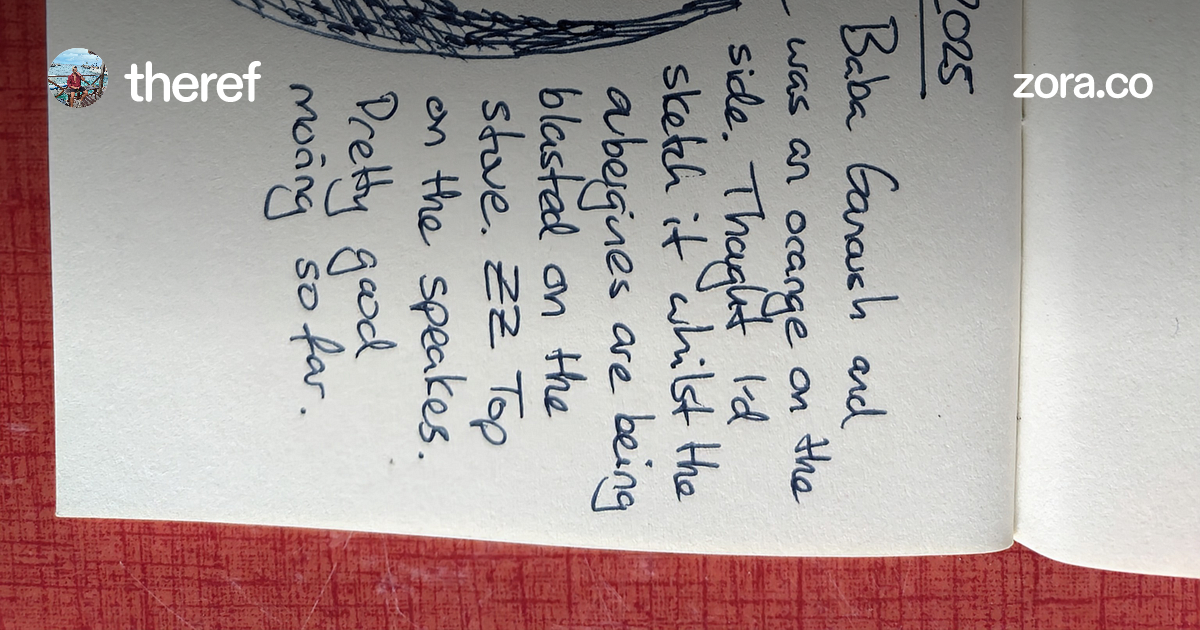 theref
zora.co
2025
Baba Ganoush and
- was an orange on the
side. Thought I'd
sketch it whilst the
abergines are being
blasted on the
stove. ZZ Top
on the speakes.
Pretty good
moring so far.